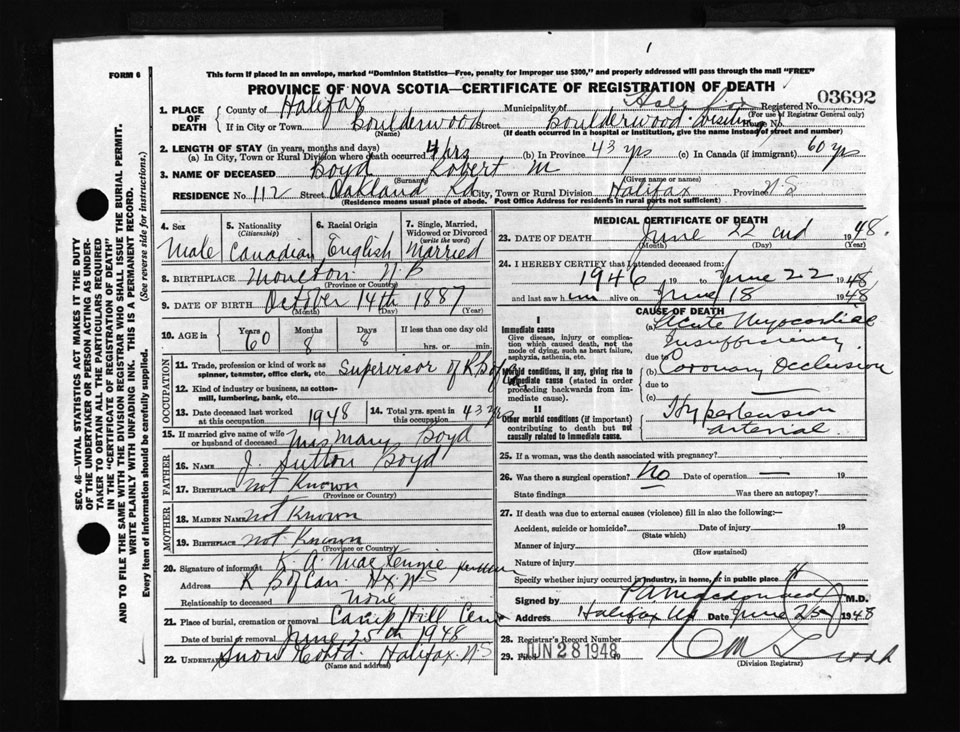 FORM 6
This form if placed in an envelope, marked "Dominion Statistics—Free, penalty for improper use $300," and properly addressed will pass through the mail "FREE"
PROVINCE OF NOVA SCOTIA—CERTIFICATE OF REGISTRATION OF DEATH
03692
1. PLACE OF DEATH
County of Halifax Municipality of Halifax Registered No.
(For use of Registrar General only)
If in City or Town Boulderwood Street Boulderwood House No.
(Name) (If death occurred in a hospital or institution, give the name instead of street and number)
2. LENGTH OF STAY (in years, months and days)
(a) In City, Town or Rural Division where death occurred 4 hrs (b) In Province 43 yrs (c) In Canada (if immigrant) 60 yrs
3. NAME OF DECEASED Boyd Robert M
(Surname) (Given name or names)
RESIDENCE No. 112 Street Oakland Rd City, Town or Rural Division Halifax Province N.S
(Residence means usual place of abode. Post Office Address for residents in rural parts not sufficient)
4. Sex Male
5. Nationality (Citizenship) Canadian
6. Racial Origin English
7. Single, Married, Widowed or Divorced (write the word) Married
8. BIRTHPLACE Moncton N.B
(Province or Country)
9. DATE OF BIRTH October 14th 1887
(Month) (Day) (Year)
10. AGE in Years 60 Months 8 Days 8 If less than one day old hrs. or min.
OCCUPATION
11. Trade, profession or kind of work as spinner, teamster, office clerk, etc. Supervisor of
12. Kind of industry or business, as cotton-mill, lumbering, bank, etc.
13. Date deceased last worked at this occupation 1948
14. Total yrs. spent in this occupation 43 yrs
15. If married give name of wife or husband of deceased Mrs Mary Boyd
FATHER
16. NAME J. Sutton Boyd
17. BIRTHPLACE Not Known
(Province or Country)
MOTHER
18. MAIDEN NAME Not Known
19. BIRTHPLACE Not Known
(Province or Country)
20. Signature of informant K. A. MacKennie
Address K of Can. Hx. N.S
Relationship to deceased None
21. Place of burial, cremation or removal Camp Hill Cem
Date of burial or removal June 25th 1948
22. UNDERTAKER Snow Co Ltd. Halifax. N.S
(Name and address)
MEDICAL CERTIFICATE OF DEATH
23. DATE OF DEATH June 22nd 1948.
(Month) (Day) (Year)
24. I HEREBY CERTIFY that I attended deceased from:
1946 19 to June 22 1948
and last saw him alive on June 18 1948
CAUSE OF DEATH
I
Immediate cause
Give disease, injury or complication which caused death, not the mode of dying, such as heart failure, asphyxia, asthenia, etc.
(a) Acute Myocardial Insufficiency
due to
(b) Coronary Occlusion
Morbid conditions, if any, giving rise to immediate cause (stated in order proceeding backwards from immediate cause).
due to
(c)
II
Other morbid conditions (if important) contributing to death but not causally related to immediate cause.
Hypertension arterial
25. If a woman, was the death associated with pregnancy?
26. Was there a surgical operation? No Date of operation — 19
State findings Was there an autopsy?
27. If death was due to external causes (violence) fill in also the following:—
Accident, suicide or homicide? Date of injury 19
(State which)
Manner of injury
(How sustained)
Nature of injury
Specify whether injury occurred in industry, in home, or in public place
Signed by M.D.
Address Halifax NS Date June 25 1948
28. Registrar's Record Number
29. Filed JUN 28 1948 19
(Division Registrar)
SEC. 46—VITAL STATISTICS ACT MAKES IT THE DUTY
OF THE UNDERTAKER OR PERSON ACTING AS UNDER-
TAKER TO OBTAIN ALL THE PARTICULARS REQUIRED
IN THE "CERTIFICATE OF REGISTRATION OF DEATH"
AND TO FILE THE SAME WITH THE DIVISION REGISTRAR WHO SHALL ISSUE THE BURIAL PERMIT.
WRITE PLAINLY WITH UNFADING INK. THIS IS A PERMANENT RECORD.
Every item of information should be carefully supplied. (See reverse side for instructions.)